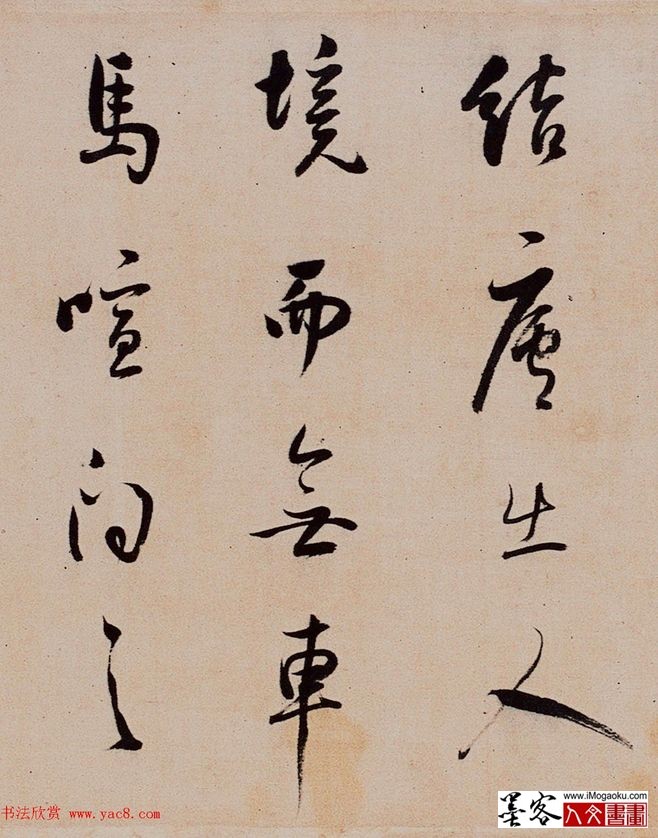 結廬在人
境而無車
馬喧問君
书法欣赏 www.yac8.com
www.iMogaoku.com
墨客 人文書畫